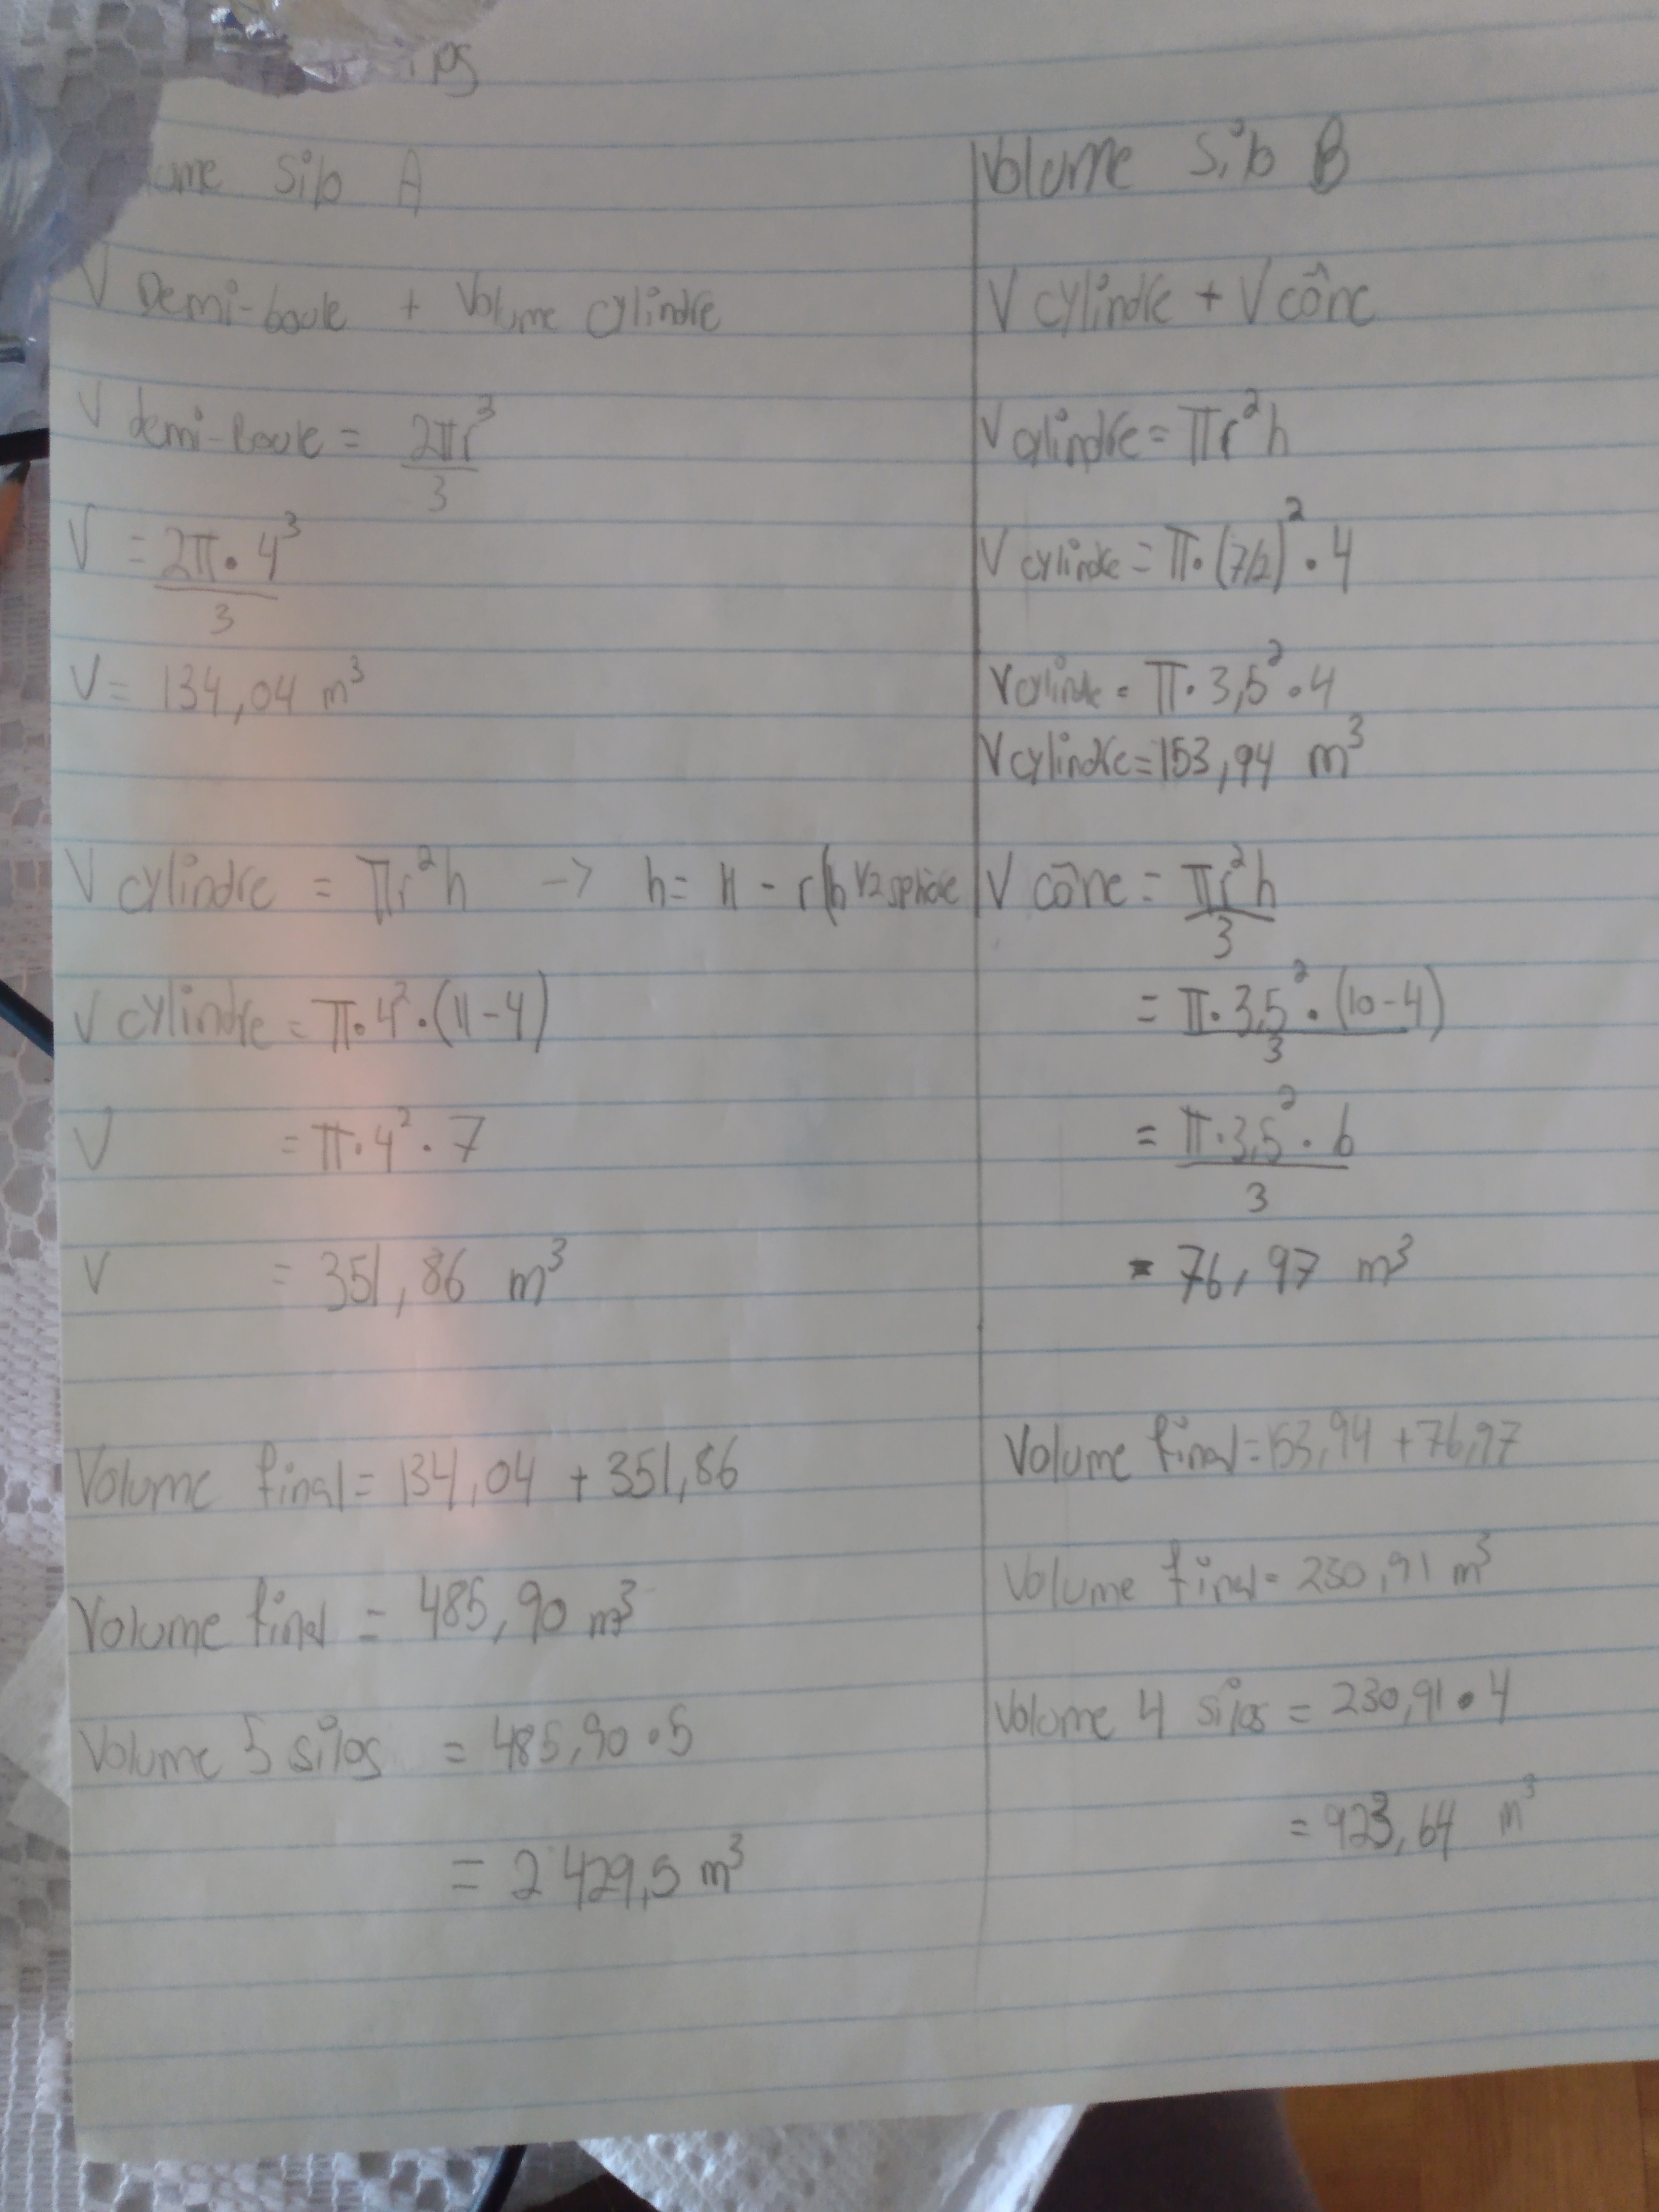 Volume Silo A
V Demi-boule + Volume cylindre
V demi-boule = 2πr³
3
V = 2π • 4³
3
V = 134,04 m³
V cylindre = πr²h -> h = 11 - r(h 1/2 sphère
V cylindre = π•4²•(11-4)
V = π•4²•7
V = 351,86 m³
Volume final = 134,04 + 351,86
Volume final = 485,90 m³
Volume 5 silos = 485,90 • 5
= 2 429,5 m³
Volume Silo B
V cylindre + V cône
V cylindre = πr²h
V cylindre = π•(7/2)²•4
V cylindre = π•3,5²•4
V cylindre = 153,94 m³
V cône = πr²h
3
= π•3,5²•(10-4)
3
= π•3,5²•6
3
= 76,97 m³
Volume final = 153,94 + 76,97
Volume final = 230,91 m³
Volume 4 silos = 230,91 • 4
= 923,64 m³